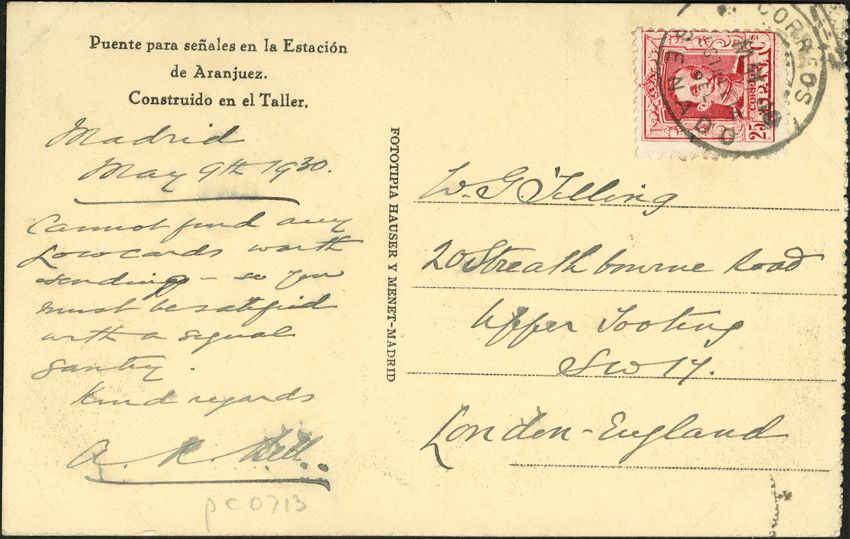 Puente para señales en la Estación
de Aranjuez.
Construido en el Taller.
Madrid
May 9th 1930.
Cannot find any
Lococards worth
sending – so you
must be satisfied
with a signal
gantry.
Kind regards
A. R. Bell.
pc0713
FOTOTIPIA HAUSER Y MENET-MADRID
CORREOS
SENADO
CORREOS
ESPAÑA
25
W. G. Tilling
20 Streathbourne Road
Upper Tooting
SW 17.
London - England